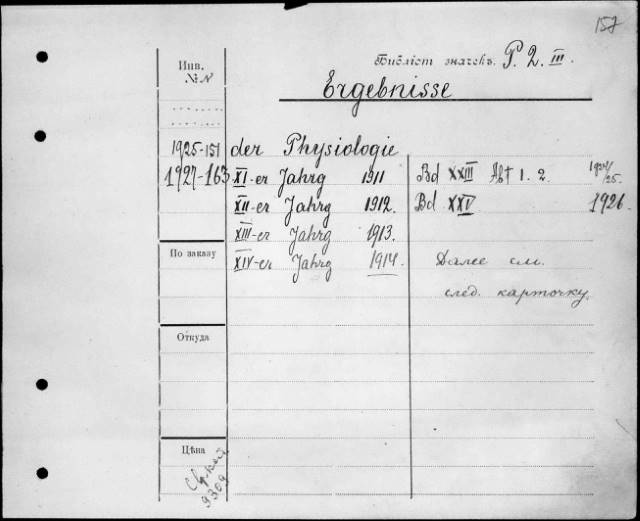 157
Инв.
№ N
Библіот. значекъ. P. 2. III.
Ergebnisse
1925-151 der Physiologie
1927-163 XI-er Jahrg 1911 Bd XXIII Abt 1. 2. 1924/25.
XII-er Jahrg 1912. Bd XXV 1926.
XIII-er Jahrg 1913.
По заказу XIV-er Jahrg 1914. Далее см.
след. карточку.
Откуда
Цѣна
9309